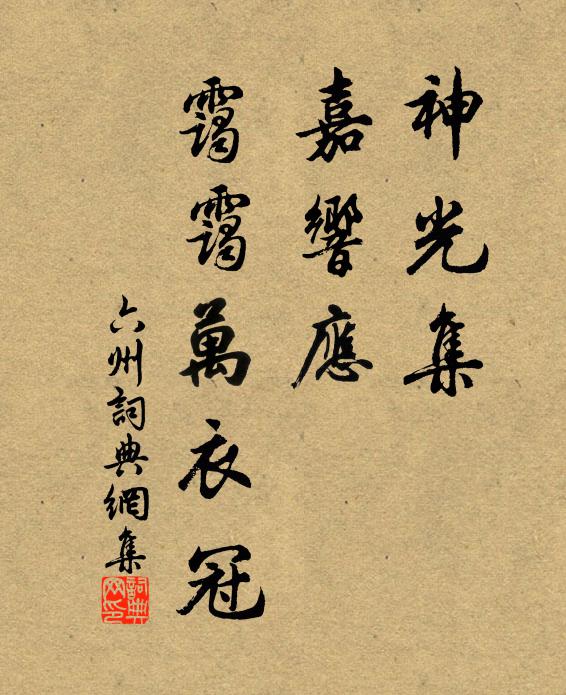 神光集
嘉響應
靄靄萬衣冠
六州詞典網集
詞典网印